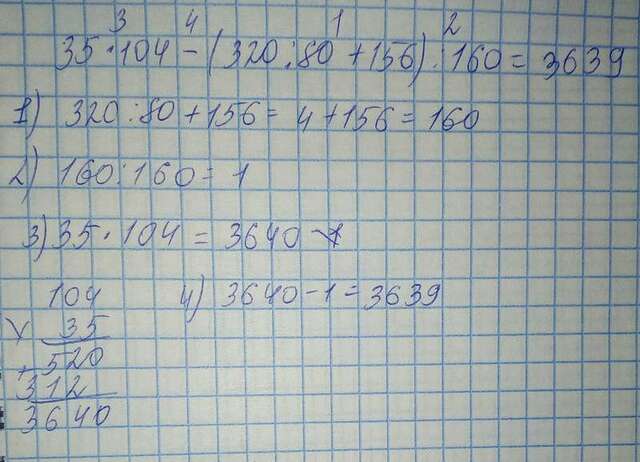 3 4 1 2
35 · 104 - (320 : 80 + 156) : 160 = 3639
1) 320 : 80 + 156 = 4 + 156 = 160
2) 160 : 160 = 1
3) 35 · 104 = 3640
104
4) 3640 - 1 = 3639
× 35
+ 520
312
3640